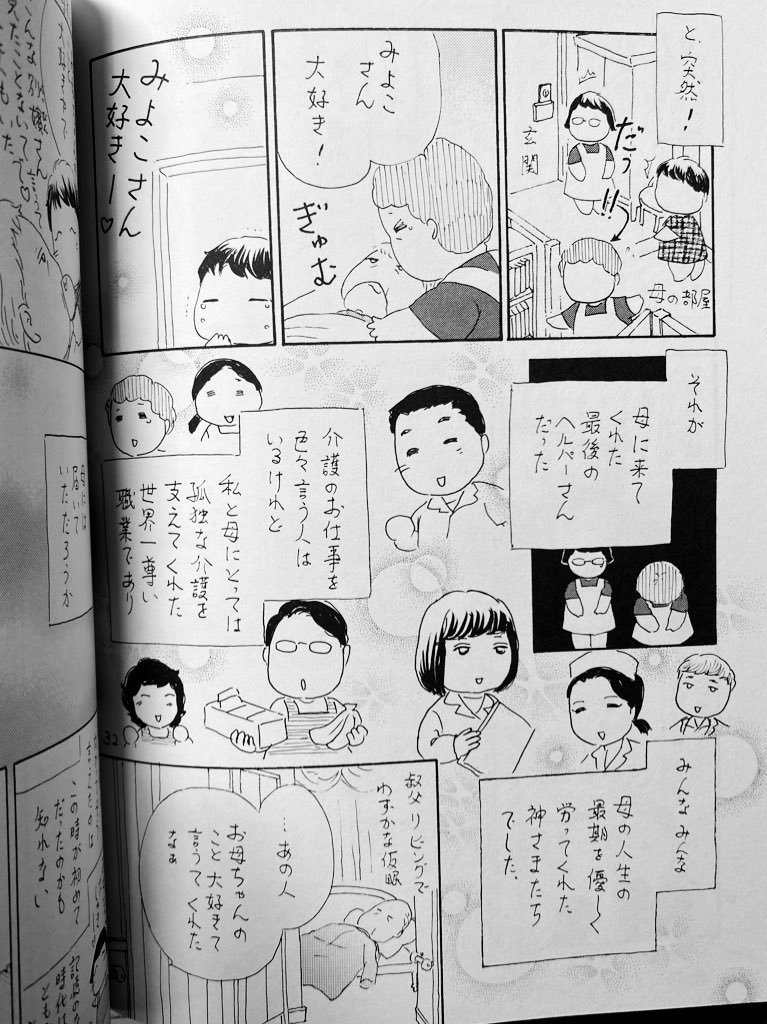 と、突然！
玄関
だっ
!!
母の部屋
みよこ
さん
大好き！
ぎゅむ
みよこさん
大好きー♡
それが
母に来て
くれた
最後の
ヘルパーさん
だった
介護のお仕事を
色々言う人は
いるけれど
私と母にとっては
孤独な介護を
支えてくれた
世界一尊い
職業であり
みんなみんな
母の人生の
最期を優しく
労ってくれた
神さまたち
でした。
32
叔父 リビングで
わずかな仮眠
…あの人
お母ちゃんの
こと大好きて
言うてくれた
なぁ
母には
届いて
いただろうか
この時が初めて
だったのかも
知れない